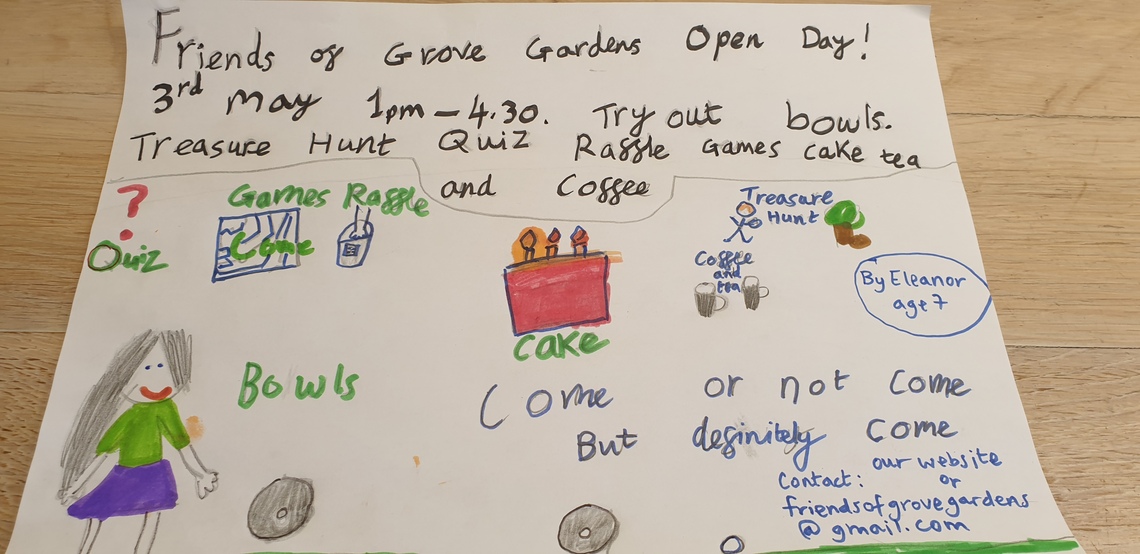 Friends of Grove Gardens Open Day!
3rd May 1pm – 4.30. Try out bowls.
Treasure Hunt Quiz Raffle Games cake tea
and Coffee
?
Quiz
Games Raffle
Come
Treasure
Hunt
Coffee
and
tea
By Eleanor
age 7
cake
Bowls
Come or not come
But definitely come
our website
Contact: or
friendsofgrovegardens
@gmail.com